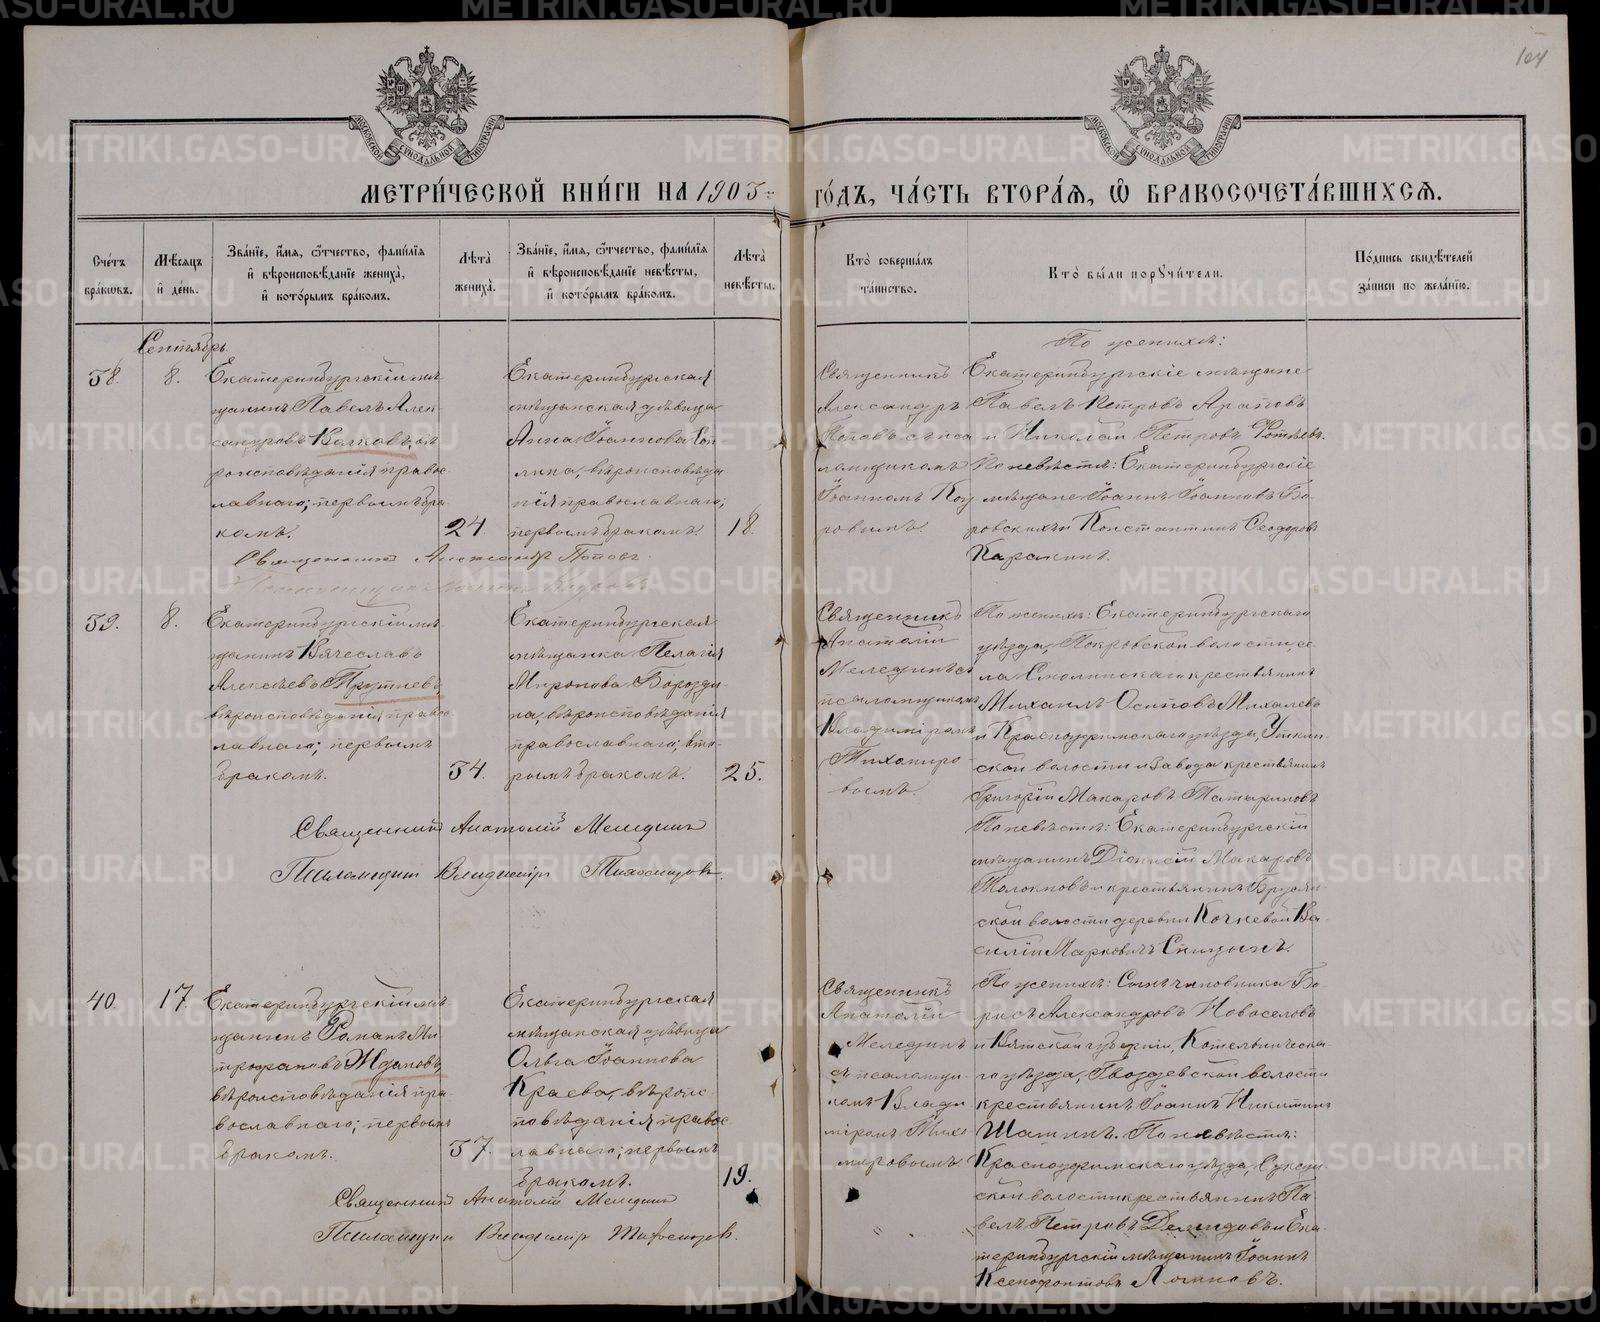 104
МОСКОВСКОЙ СѴНОДАЛЬНОЙ ТИПОГРАФІИ
МОСКОВСКОЙ СѴНОДАЛЬНОЙ ТИПОГРАФІИ
МЕТРИ́ЧЕСКОЙ КНИ́ГИ НА 1903
ГО́ДЪ, ЧА́СТЬ ВТОРА́Я, Ѽ БРАКОСОЧЕТА́ВШИХСЯ.
Сче́тъ бра́кѡвъ.
Мѣ́сяцъ и҆ де́нь.
Зва́нїе, и҆́мя, ѻ҆́тчество, фами́лїя
и҆ вѣроисповѣ́данїе жениха̀,
и҆ кото́рымъ бра́комъ.
Лѣ́та жениха̀.
Зва́нїе, и҆́мя, ѻ҆́тчество, фами́лїя
и҆ вѣроисповѣ́данїе невѣ́сты,
и҆ кото́рымъ бра́комъ.
Лѣ́та невѣ́сты.
Кто̀ соверша́лъ
та́инство.
Кто̀ бы́ли порꙋчи́тели.
По́дпись свидѣ́телей
за́писи по жела́нїю.
Сентябрь
38.
8.
Екатеринбургскій мѣ
щанинъ Павелъ Алек
сандровъ Волковъ, вѣ
роисповѣданія правос
лавнаго; первымъ бра
комъ.
24.
Екатеринбургская
мѣщанская дѣвица
Анна Іоаннова
вѣроисповѣда
нія православнаго;
первымъ бракомъ.
18.
Священникъ
Александръ
Поповъ с пса
ломщикомъ
Іоанномъ Коу
ровымъ.
По женихѣ:
Екатеринбургскіе мѣщане
Павелъ Петровъ Араповъ
и Николай Петровъ Фотѣевъ.
По невѣстѣ: Екатеринбургскіе
мѣщане Іоаннъ Іоанновъ Бо
ровскихъ и Константинъ Ѳеодоровъ
Каракинъ.
Священникъ Александръ Поповъ
39.
8.
Екатеринбургскій мѣ
щанинъ Вячеславъ
Алексѣевъ Прутневъ,
вѣроисповѣданія правос
лавнаго; первымъ
бракомъ.
34.
Екатеринбургская
мѣщанка Пелагія
Миронова Борозди
на, вѣроисповѣданія
православнаго; вто
рымъ бракомъ.
25.
Священникъ
Анатолій
Мелединъ съ
псаломщикомъ
Владиміромъ
Тихомиро
вымъ.
По женихѣ: Екатеринбургскаго
уѣзда, Покровской волости, се
ла Смолинскаго крестьянинъ
Михаилъ Осиповъ Михалевъ
и Красноуфимскаго уѣзда, Уткин
ской волости и завода крестьянинъ
Григорій Макаровъ Татыриновъ
По невѣстѣ: Екатеринбургскій
мѣщанинъ Діонисій Макаровъ
Толокновъ и крестьянинъ Брусян
ской волости деревни Кочневой Ва
силій Марковичъ Спицынъ.
Священникъ Анатолій Мелединъ
Псаломщикъ Владиміръ Тихомировъ.
40.
17.
Екатеринбургскій мѣ
щанинъ Романъ Ми
трофановъ Ждановъ,
вѣроисповѣданія пра
вославнаго; первымъ
бракомъ.
37.
Екатеринбургская
мѣщанская дѣвица
Ольга Іоаннова
Краева, вѣроис
повѣданія правос
лавнаго; первымъ
бракомъ.
19.
Священникъ
Анатолій
Мелединъ
съ псаломщи
комъ Влади
міромъ Тихо
мировымъ
По женихѣ: Сынъ чиновника Бо
рисъ Александровъ Новоселовъ
и Вятской губерніи, Котельническа
го уѣзда, Гвоздевской волости
крестьянинъ Іоаннъ Никитинъ
Шатинъ. По невѣстѣ:
Красноуфимскаго уѣзда,
ской волости крестьянинъ Па
велъ Петровъ Демидовъ и Ека
теринбургскій мѣщанинъ Іоаннъ
Ксенофонтовъ Логиновъ.
Священникъ Анатолій Мелединъ
Псаломщикъ Владиміръ Тихомировъ.
METRIKI.GASO-URAL.RU